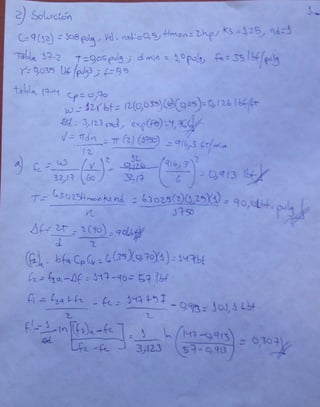 2) Solución
C=9(12) = 108 pulg, Vel. rad=0.5, Hnom= 2hp, Ks=1.25, nd=1
Tabla 17-2 T=0,05 pulg; d min = 1,0 pulg, Fa= 35 lbf/pulg
γ=0,035 lbf/pulg3; f=0.5
Tabla 17-4 Cp=0,70
w= 12γbt = 12(0,035)(6)(0,05)=0,126 lbf/ft
θd= 3,123 rad, exp(fθ)=4,766
V= πdn/12 = π(2)(1750)/12 = 916,3 ft/min
a) Fc= w/32,17 (V/60)² = 0,126/32,17 (916,3/6)² = 0,913 lbf
T= 63025Hnomksnd/n = 63025(2)(1,25)(1)/1750 = 90,0 lbf. pulg
Δf= 2T/d = 2(90)/2 = 90 lbf
(F1)a= bFaCpCv = 6(35)(0,70)(1) = 147 lbf
F2= F1a-Δf = 147-90 = 57 lbf
Fi= F1a+F2/2 - Fc = 147+57/2 - 0,913 = 101,1 lbf
f'= 1/θd ln [(F1)a-Fc/F2-Fc] = 1/3,123 ln (147-0,913/57-0,913) = 0,307